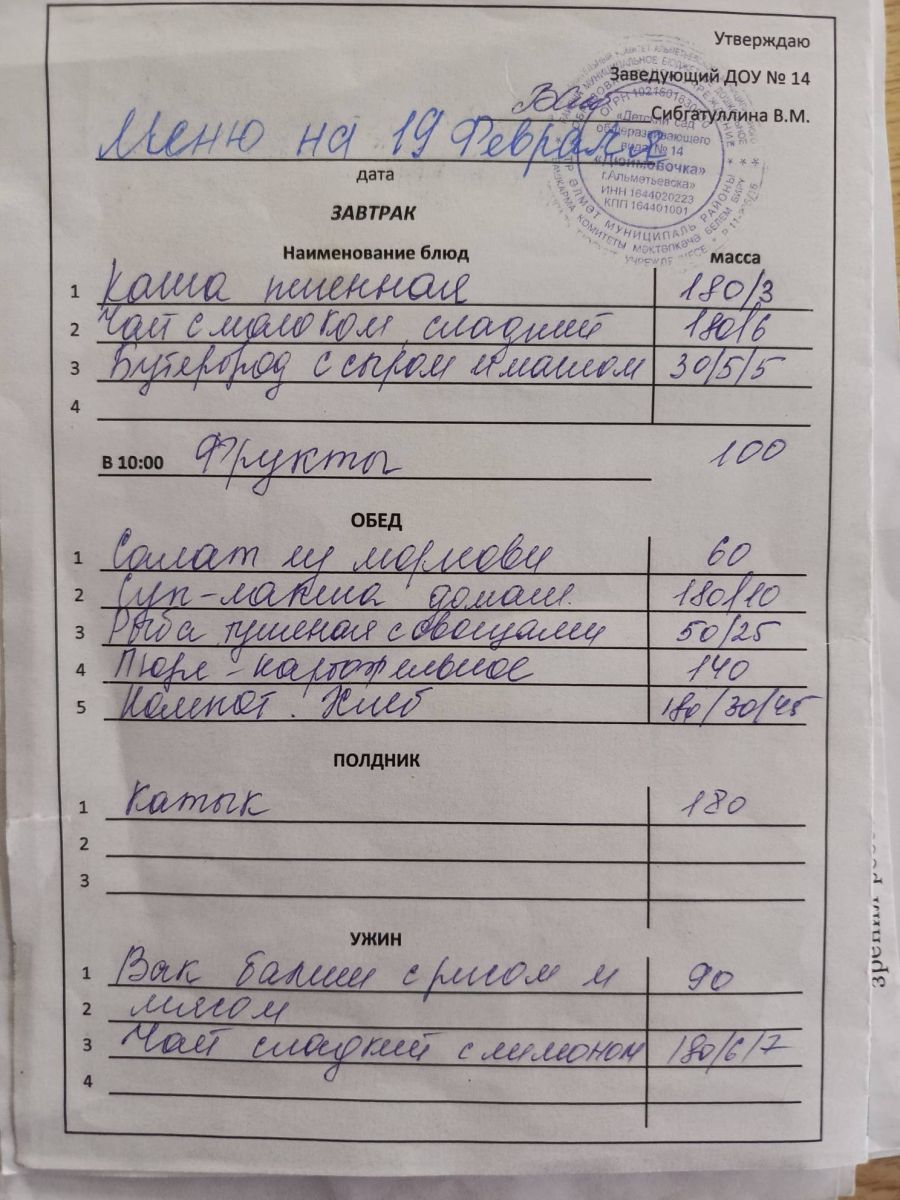 Утверждаю
Заведующий ДОУ № 14
Сибгатуллина В.М.
«Детский сад
общеразвивающего
вида № 14
«Дюймовочка»
г.Альметьевска»
ИНН 1644020223
КПП 164401001
Меню на 19 Февраля
дата
ЗАВТРАК
Наименование блюд масса
1 Каша пшенная 180/3
2 Чай с молоком сладкий 180/6
3 Бутерброд с сыром и маслом 30/5/5
4
В 10:00 Фрукты 100
ОБЕД
1 Салат из моркови 60
2 Суп-лапша домаш. 180/10
3 Рыба тушеная с овощами 50/25
4 Пюре-картофельное 140
5 Компот. Хлеб 180/30/45
ПОЛДНИК
1 Катык 180
2
3
УЖИН
1 Вак балиш с рисом и 90
2 мясом
3 Чай сладкий с лимоном 180/6/7
4
зрения